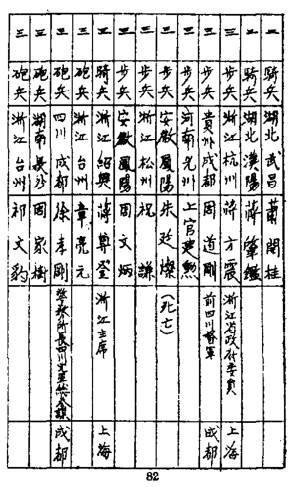 二 騎兵 湖北武昌 蕭開桂
二 騎兵 湖北漢陽 蔣肇鑑
三 步兵 浙江杭州 蔣方震 浙江省政府委員 上海
三 步兵 貴州成都 周道剛 前四川督軍 成都
三 步兵 河南光州 上官建勲
三 步兵 安徽鳳陽 朱廷燦 (死亡)
三 步兵 浙江松州 祝謙
三 步兵 安徽鳳陽 周文炳
三 騎兵 浙江紹興 蔣尊簋 浙江主席 上海
三 砲兵 浙江台州 章亮元
三 砲兵 四川成都 徐孝剛 成都
三 砲兵 湖南長沙 周家樹
三 砲兵 浙江台州 祁文豹
82